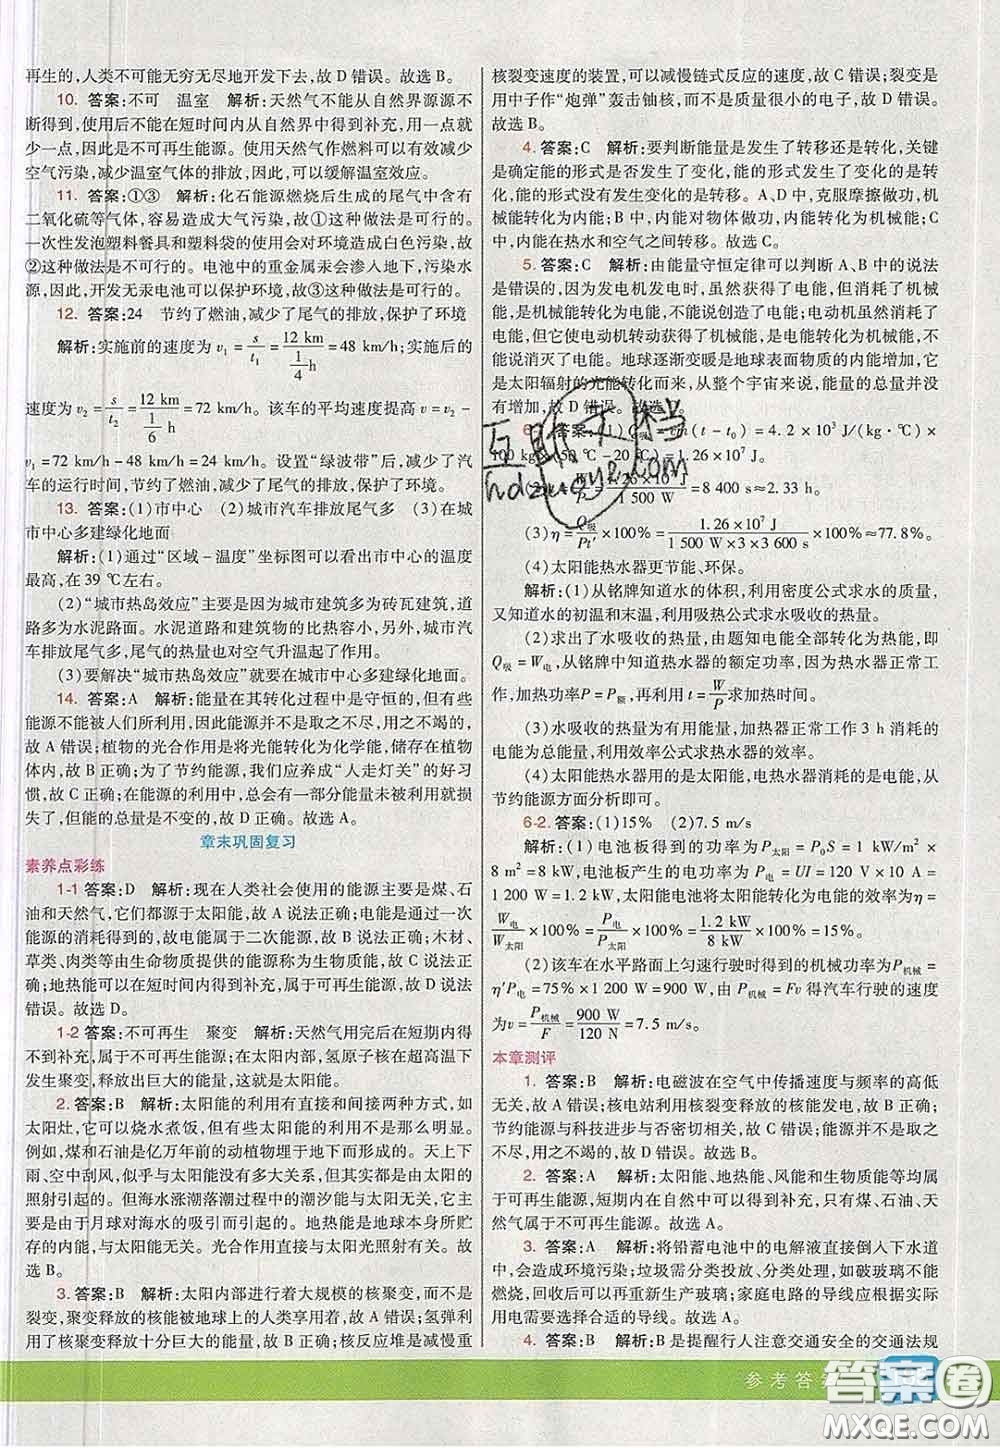 再生的,人类不可能无穷无尽地开发下去,故 D 错误。故选 B。
10. 答案:不可 温室 解析:天然气不能从自然界源源不
断得到,使用后在短时间内从自然界中得到补充,用一点就
少一点,因此是不可再生能源。使用天然气作燃料可以有效减少
空气污染,减少温室气体的排放,因此,可以缓解温室效应。
11. 答案:①③ 解析:化石能源燃烧后生成的尾气中含有
二氧化硫等气体,容易造成大气污染,故①这种做法是可行的。
一次性发泡塑料餐具和塑料袋的大量使用会对环境造成白色污染,故
②这种做法是不可行的。电池中的重金属汞会渗入地下,污染水
源,因此,开发无汞电池可以保护环境,故③这种做法是可行的。
12. 答案:24 节约了燃油,减少了尾气的排放,保护了环境
解析:实施前的速度为 v₁ = s/t₁ = 12 km/(1/4 h) = 48 km/h;实施后的
速度为 v₂ = s/t₂ = 12 km/(1/6 h) = 72 km/h。该车的平均速度提高 v = v₂ -
v₁ = 72 km/h - 48 km/h = 24 km/h。设置“绿波带”后,减少了汽
车的运行时间,节约了燃油,减少了尾气的排放,保护了环境。
13. 答案:(1)市中心 (2)城市汽车排放尾气多 (3)在城
市中心多建绿化地面
解析:(1)通过“区域-温度”坐标图可以看出市中心的温度
最高,在 39 ℃左右。
(2)“城市热岛效应”主要是因为城市建筑多为砖瓦建筑,道
路多为水泥路面。水泥道路和建筑物的比热容较小,另外,城市汽
车排放尾气多,尾气的热量也对空气升温起了作用。
(3)要解决“城市热岛效应”就得在城市中心多建绿化地面。
14. 答案:A 解析:能量在其转化过程中是守恒的,但有些
能源不能被人们所利用,因此能源并不是取之不尽,用之不竭的,
故 A 错误;植物的光合作用是将光能转化为化学能,储存在植物
体内,故 B 正确;为了节约能源,我们应养成“人走灯关”的好习
惯,故 C 正确;在能源的利用中,总会有一部分能量未被利用就散
失了,但能的总量是不变的,故 D 正确。故选 A。
章末巩固复习
素养点彩练
1-1 答案:D 解析:现在人类社会使用的能源主要是煤、石
油和天然气,它们都源于太阳能,故 A 说法正确;电能是通过一次
能源的消耗得到的,故电能属于二次能源,故 B 说法正确;木材、
草类、肉类等由生命物质提供的能源称为生物质能,故 C 说法正
确;地热能可以在短时间内得到补充,属于可再生能源,故 D 说法
错误。故选 D。
1-2 答案:不可再生 聚变 解析:天然气用完后在短期内得
不到补充,属于不可再生能源;在太阳内部,氢原子核在超高温下
发生聚变,释放出巨大的能量,这就是太阳能。
2. 答案:B 解析:太阳能的利用有直接和间接两种方式,如
太阳灶,它可以烧水煮饭,但有些太阳能的利用不是直接形成的。
例如,煤和石油是亿万年前的动植物埋于地下而形成的。天上下
雨、空中刮风,似乎与太阳能没有多大关系,但其实是由太阳的
照射引起的。但海水涨潮落潮过程中的潮汐能与太阳的照射没
有关系,而是由于月球对海水的吸引而引起的。地热能是地球本身所贮
存的内能,与太阳能无关。光合作用直接与太阳光照射有关。故
选 B。
3. 答案:B 解析:太阳内部进行着大规模的核聚变,而不是
裂变,聚变释放的核能被地球上的人类享用着,故 A 错误;氢弹利
用了核聚变释放十分巨大的能量,故 B 正确;核反应堆是减慢重
核裂变速度的装置,可以减慢链式反应的速度,故 C 错误;裂变是
用中子作“炮弹”轰击铀核,而不是质量很小的电子,故 D 错误。
故选 B。
4. 答案:C 解析:要判断能量是发生了转移还是转化,关键
是确定能的形式是否发生了变化,能的形式发生了变化的是转
化,能的形式没有发生变化的是转移。A、D 中,克服摩擦做功,机
械能转化为内能;B 中,内能对物体做功,内能转化为机械能;C
中,内能在热水和空气之间转移。故选 C。
5. 答案:C 解析:由能量守恒定律可以判断 A、B 中的说法
是错误的,因为发电机发电时,虽然获得了电能,但消耗了机械
能,是机械能转化为电能,不能说创造了电能;电动机虽然消耗了电
能,但它使电动机转动获得了机械能,是电能转化为机械能,不
能说消灭了电能。地球逐渐变暖是地球表面物质的内能增加,它
是太阳辐射的光能转化而来,从整个宇宙来说,能量的总量并没
有增加,故 D 错误。故选
(1)Q = (t - t₀) = 4.2 × 10³ J/(kg · ℃) ×
100 kg × (50 ℃ - 20 ℃) = 1.26 × 10⁷ J
1.26 × 10⁷ J/1 500 W = 8 400 s ≈ 2.33 h。
(3) η = Q吸/Pt′ × 100% = 1.26 × 10⁷ J/(1 500 W × 3 × 3 600 s) × 100% ≈ 77.8%。
(4)太阳能热水器更节能、环保。
解析:(1)从铭牌知道水的体积,利用密度公式求水的质量,
又知道水的初温和末温,利用吸热公式求水吸收的热量。
(2)求出了水吸收的热量,由题知电能全部转化为热能,即
Q吸 = W电,从铭牌中知道热水器的额定功率,因为热水器正常工
作,加热功率 P = P额,利用 t = W/P 求加热时间。
(3)水吸收的热量为有用能量,加热器正常工作 3 h 消耗的
电能为总能量,利用效率公式求热水器的效率。
(4)太阳能热水器用的是太阳能,电热水器消耗的是电能,从
节约能源方面分析即可。
6-2. 答案:(1)15% (2)7.5 m/s
解析:(1)电池板得到的功率为 P太阳 = P₀S = 1 kW/m² ×
8 m² = 8 kW,电池板产生的电功率为 P电 = UI = 120 V × 10 A =
1 200 W = 1.2 kW,太阳能电池将太阳能转化为电能的效率 η =
W电/W太阳 × 100% = P电/P太阳 × 100% = 1.2 kW/8 kW × 100% = 15%。
(2)该车在水平路面上匀速行驶时得到的机械功率为 P机械 =
η′P电 = 75% × 1 200 W = 900 W,由 P机械 = Fv 得汽车行驶的速度
为 v = P机械/F = 900 W/120 N = 7.5 m/s。
本章测评
1. 答案:B 解析:电磁波在空气中传播速度与频率的高低
无关,故 A 错误;核电站利用核裂变释放的核能发电,故 B 正确;
节约能源与科技进步与否密切相关,故 C 错误;能源并不是取之不
尽,用之不竭的,故 D 错误。故选 B。
2. 答案:A 解析:太阳能、地热能、风能和生物质能等均属
于可再生能源,短期内在自然中可以得到补充,只有煤、石油、天
然气属于不可再生能源。故选 A。
3. 答案:A 解析:将铅蓄电池中的电解液直接倒入下水道
中,会造成环境污染;垃圾需分类投放、分类处理,如废玻璃不能
燃烧,回收后可以再重新生产玻璃;家庭电路的导线应根据实际
用电需要选择合适的导线。故选 A。
4. 答案:B 解析:B 是提醒行人注意交通安全的交通法规
参考答案
答案圈
MXQE.COM